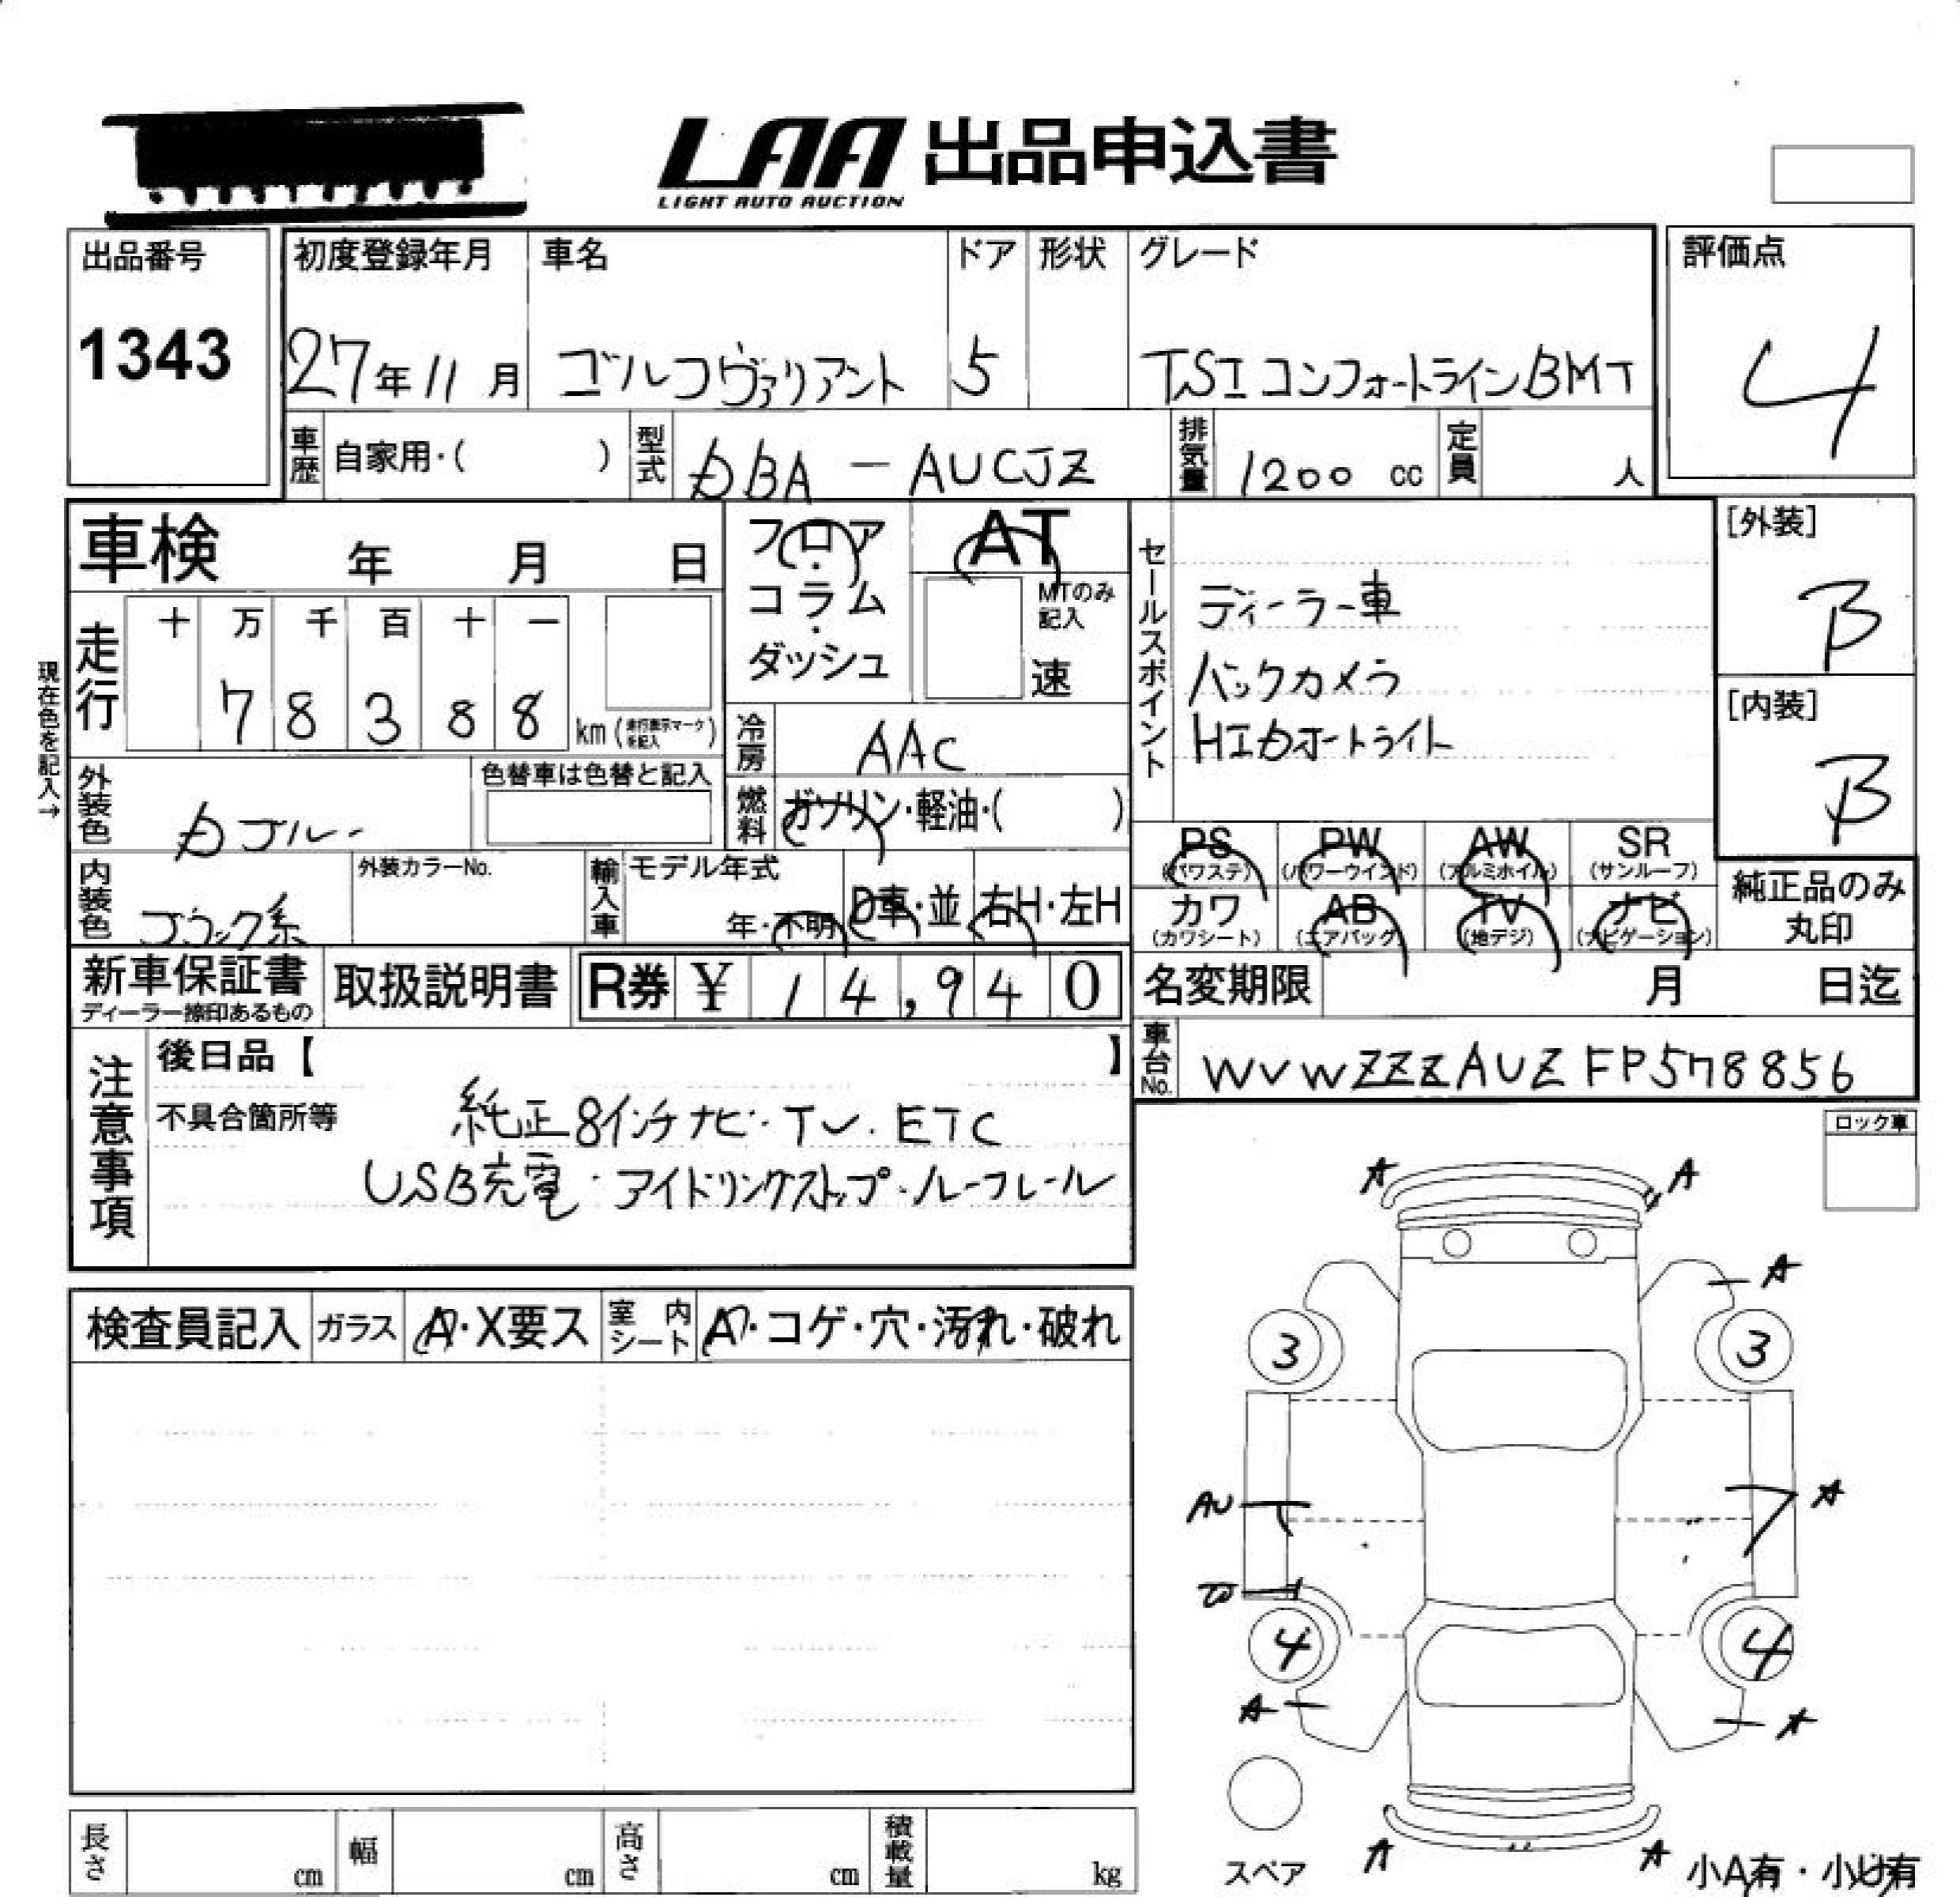 LAA 出品申込書
LIGHT AUTO AUCTION
出品番号 初度登録年月 車名 ドア 形状 グレード 評価点
1343 27年11月 ゴルフヴァリアント 5 TSIコンフォートラインBMT 4
車歴 自家用・( ) 型式 DBA - AUCJZ 排気量 1200 cc 定員 人
車検 年 月 日
フロア・コラム・ダッシュ
AT
MTのみ記入
速
セールスポイント
ディーラー車
バックカメラ
HIDオートライト
[外装]
B
[内装]
B
現在色を記入→
走行 十 万 千 百 十 一
7 8 3 8 8 km (走行表示マークを記入)
冷房 AAC
燃料 ガソリン・軽油・( )
外装色 Dブルー 色替車は色替と記入
内装色 ブラック系 外装カラーNo. 輸入車 モデル年式 年・不明 D車・並 右H・左H
PS (パワステ) PW (パワーウインド) AW (アルミホイル) SR (サンルーフ)
カワ (カワシート) AB (エアバッグ) TV (地デジ) ナビ (ナビゲーション)
純正品のみ
丸印
新車保証書 取扱説明書 R券 ¥ 14,940 名変期限 月 日迄
ディーラー捺印あるもの
車台No. WVWZZZAUZFP578856
注意事項
後日品【 】
不具合箇所等
純正8インチナビ・TV・ETC
USB充電・アイドリングストップ・ルーフレール
ロック車
検査員記入 ガラス A・X要ス 室内シート A・コゲ・穴・汚れ・破れ
A A
A
3 3
AU A
4 4
A A
A A
スペア
小A有・小U有
長さ cm 幅 cm 高さ cm 積載量 kg